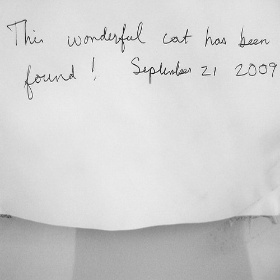 This wonderful cat has been
found! September 21 2009